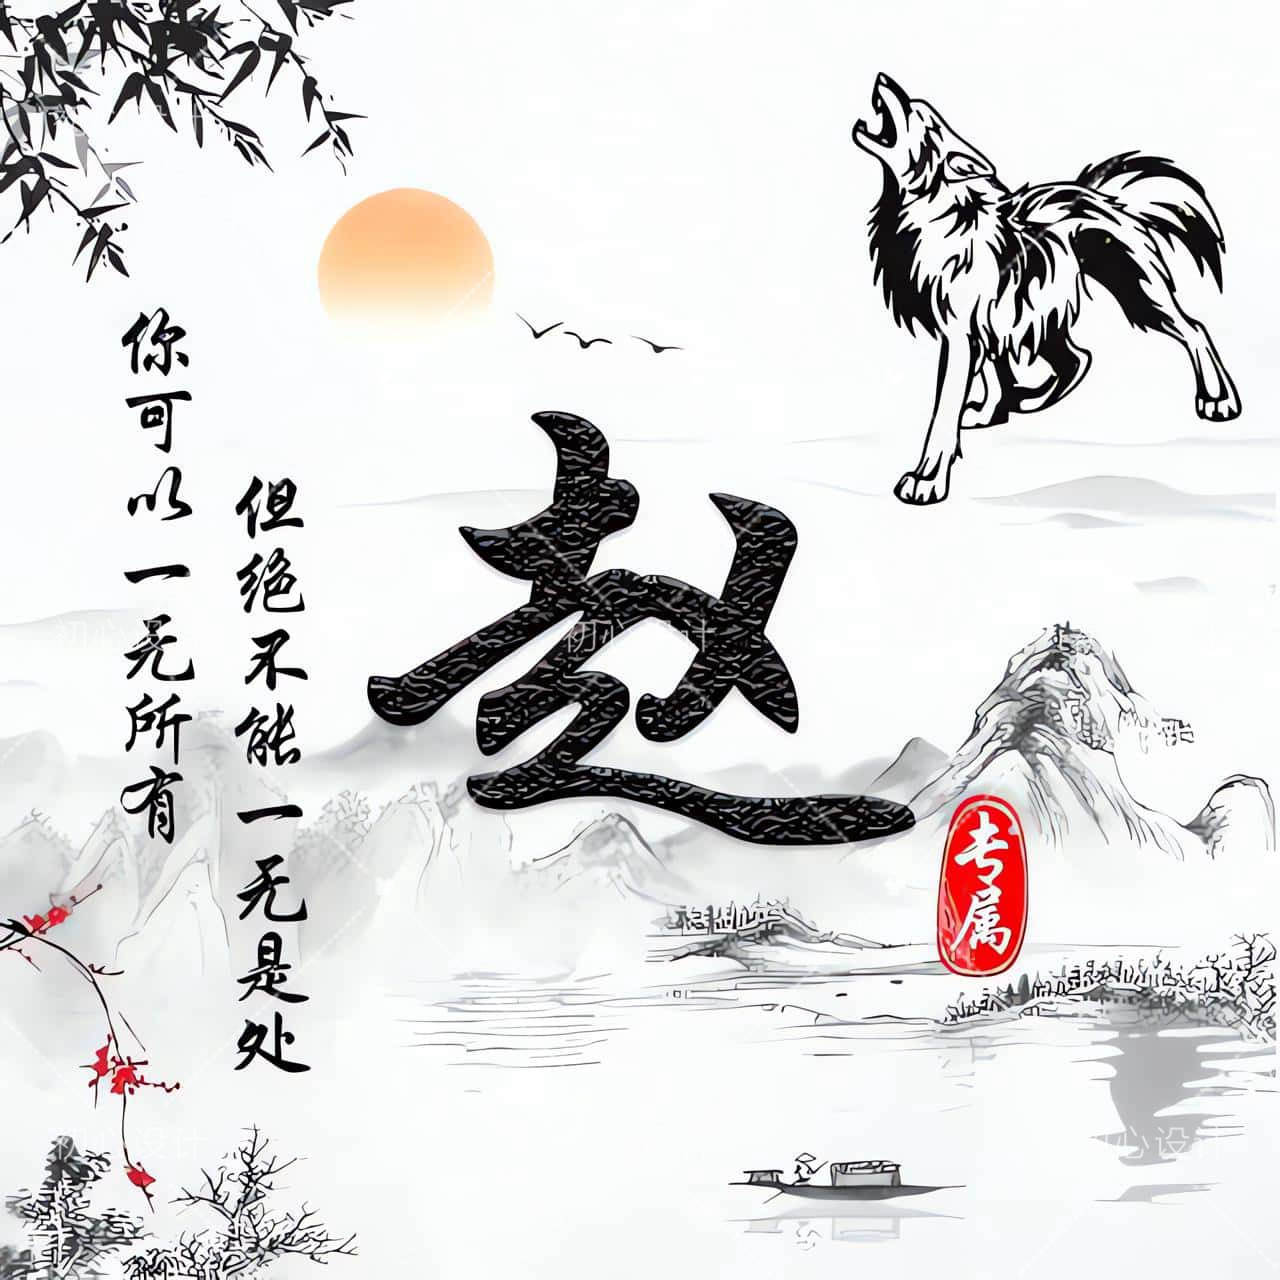 你可以一无所有
但绝不能一无是处
赵
专属
初心设计
初心设计
初心设计
心设计